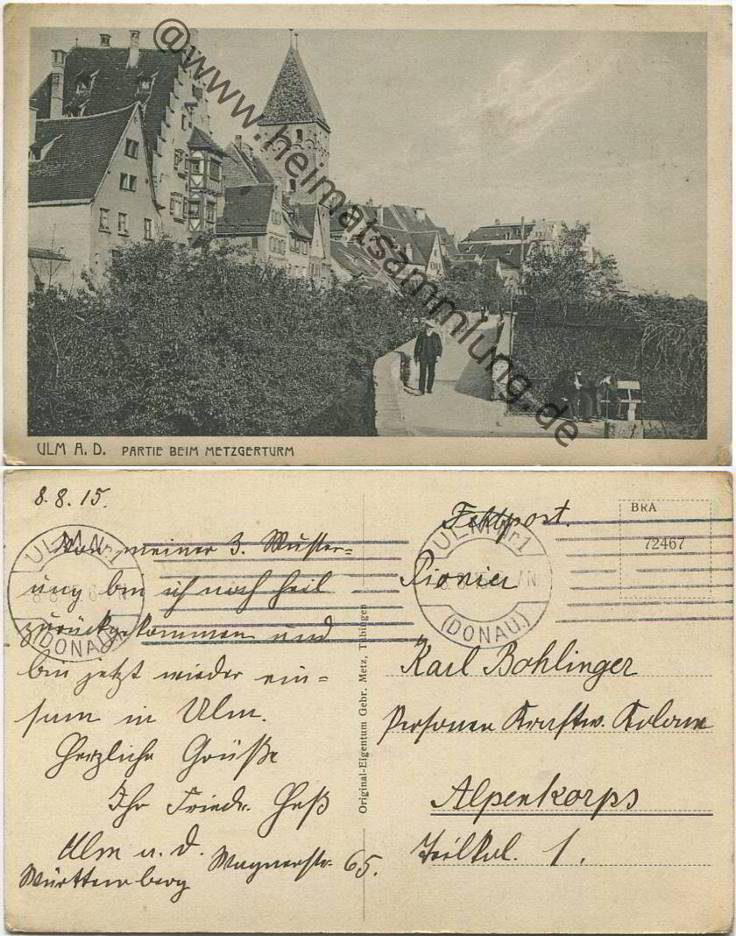 @www.heimatsammlung.de
ULM A. D. PARTIE BEIM METZGERTURM
8.8.15.
Von meiner 3. Muster=
ung bin ich noch heil
zurückgekommen und
bin jetzt wieder ein=
sam in Ulm.
Herzliche Grüße
Ihr Friedr. Heß
Ulm a. d. Wagnerstr. 65.
Württemberg
ULM Nr 1
(DONAU)
Original-Eigentum Gebr. Metz, Tübingen
Feldpost.
BRA
72467
ULM Nr 1
(DONAU)
Pionier
Karl Bohlinger
Personen Kraftw. Kolonne
Alpenkorps
Teilkol. 1.